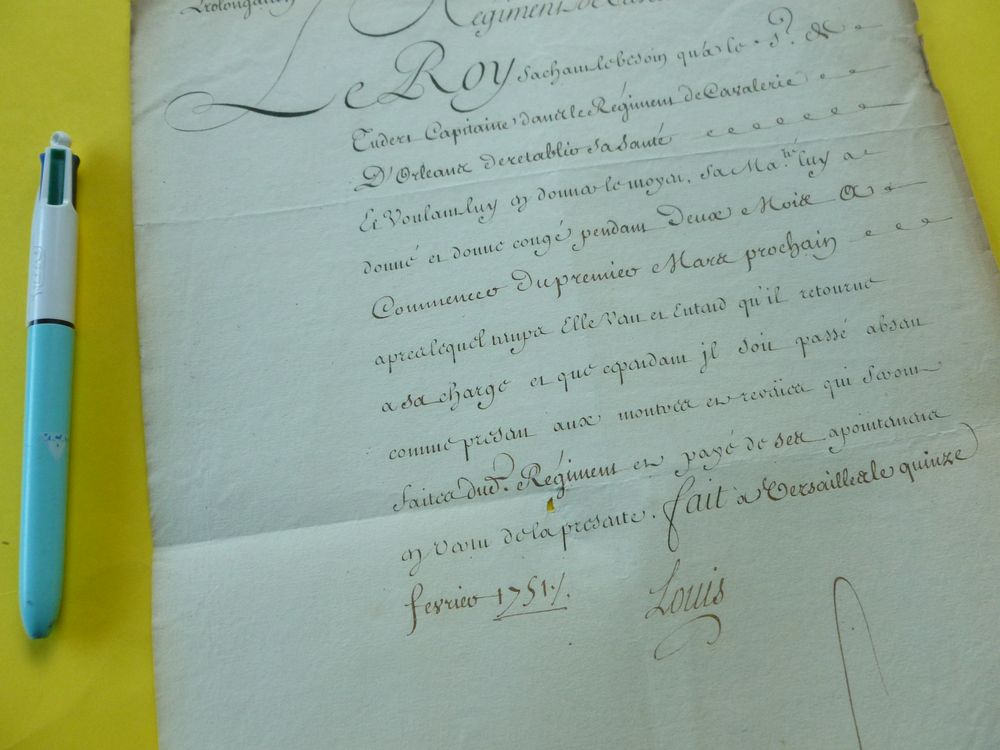 Prolongation
Regiment de
Le Roy sachant le besoin qu'a le S.r de
Tuders Capitaine dans le Régiment de Cavalerie
D'Orleans de retablir sa santé
Et Voulant luy en donner le moyen, sa Ma.té luy a
donné et donne congé pendant Deux Mois A
Commencer du premier Mars prochain
apres lequel temps Elle Veut et Entend qu'il retourne
a sa charge et que cependant jl soit passé absent
comme present aux montres et reveües qui seront
faites dud.t Régiment et payé de ses apointemens
en vertu de la presente. fait à Versailles le quinze
fevrier 1751./.
Louis